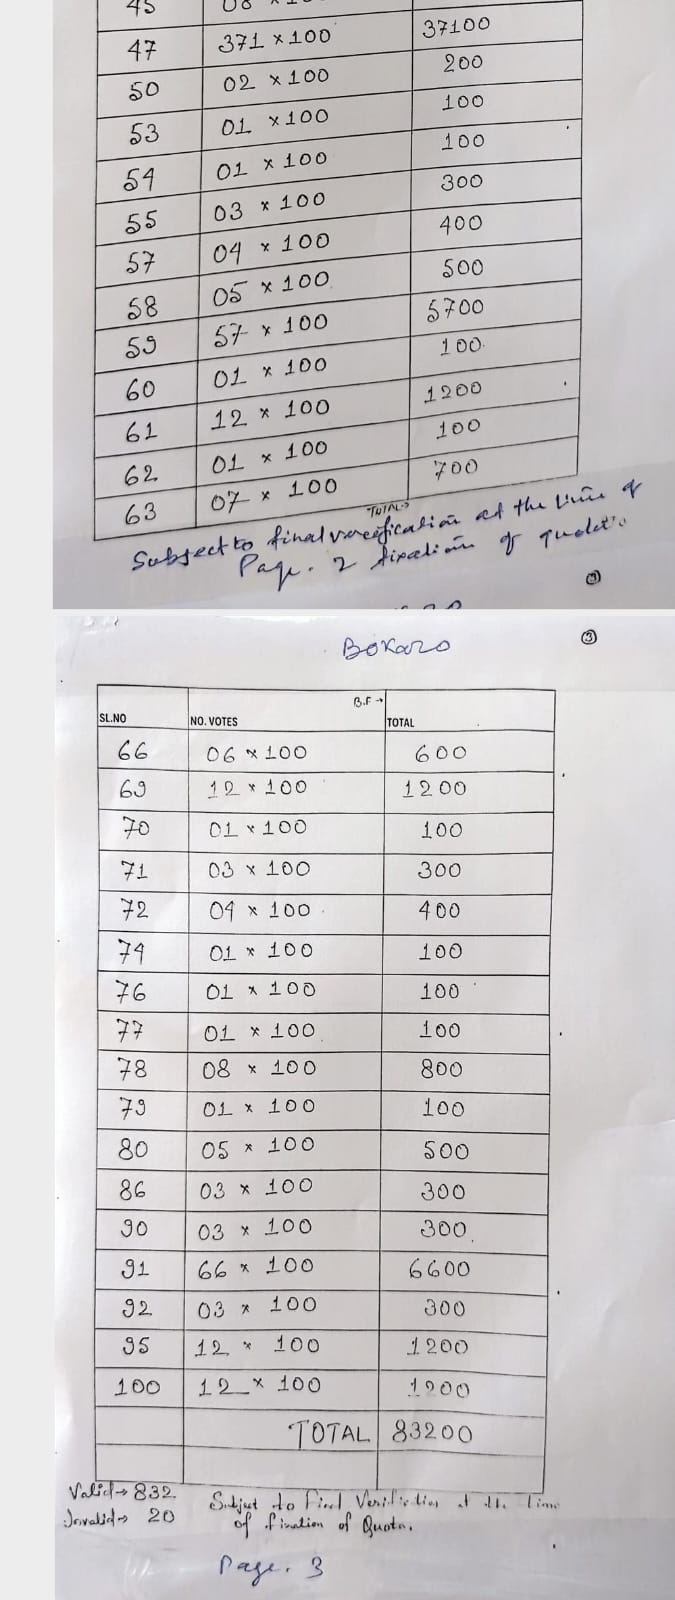 45 08 × 100
47 371 × 100 37100
50 02 × 100 200
53 01 × 100 100
54 01 × 100 100
55 03 × 100 300
57 04 × 100 400
58 05 × 100 500
59 57 × 100 5700
60 01 × 100 100
61 12 × 100 1200
62 01 × 100 100
63 07 × 100 700
TOTAL→
Subject to final verification at the time of
Page. 2 fixation of quota
Bokaro ③
B.F →
SL.NO NO. VOTES TOTAL
66 06 × 100 600
69 12 × 100 1200
70 01 × 100 100
71 03 × 100 300
72 04 × 100 400
74 01 × 100 100
76 01 × 100 100
77 01 × 100 100
78 08 × 100 800
79 01 × 100 100
80 05 × 100 500
86 03 × 100 300
90 03 × 100 300
91 66 × 100 6600
92 03 × 100 300
95 12 × 100 1200
100 12 × 100 1200
TOTAL 83200
Valid→ 832. Subject to Final Verification at the time
Invalid→ 20 of fixation of Quota.
Page. 3